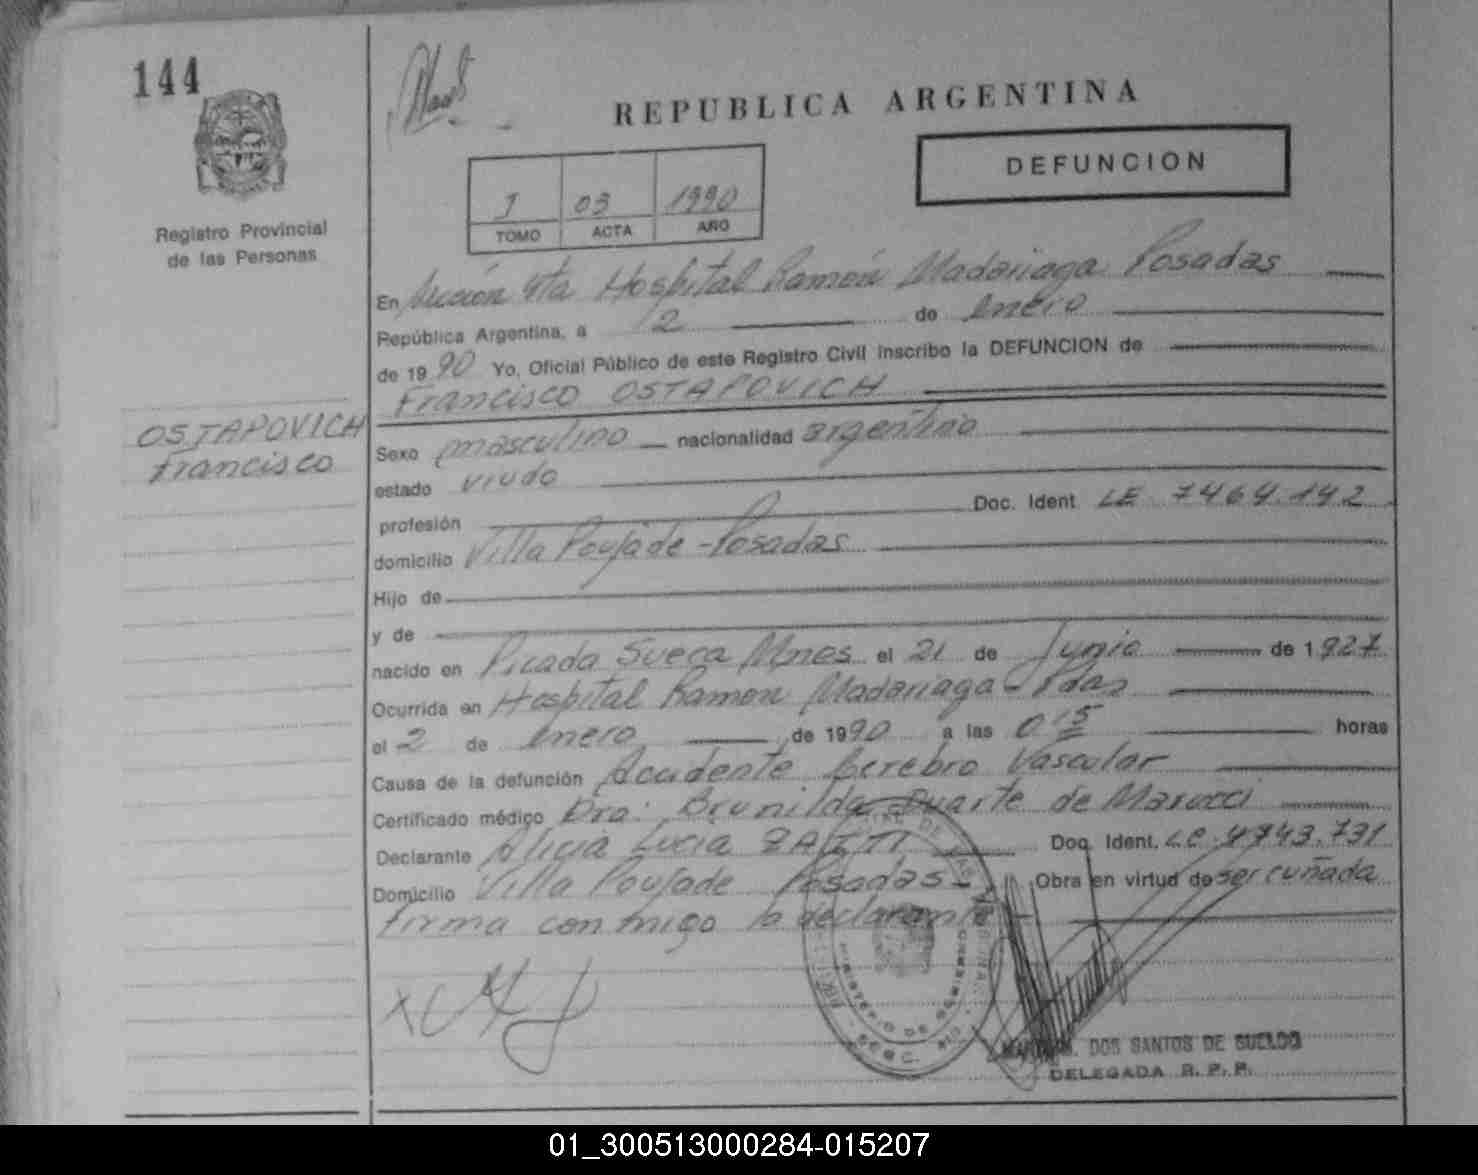 144
REPUBLICA ARGENTINA
DEFUNCION
I 03 1990
TOMO ACTA AÑO
Registro Provincial
de las Personas
En Sección 4ta Hospital Ramón Madariaga Posadas
República Argentina, a 2 de Enero
de 1990 Yo, Oficial Público de este Registro Civil inscribo la DEFUNCION de
Francisco OSTAPOVICH
OSTAPOVICH
Francisco
Sexo masculino nacionalidad argentino
estado viudo
profesión Doc. Ident LE 7464.142
domicilio Villa Poujade - Posadas
Hijo de
y de
nacido en Picada Sueca Mnes el 21 de Junio de 1927
Ocurrida en Hospital Ramon Madariaga - Pdas
el 2 de Enero de 1990 a las 0,15 horas
Causa de la defunción Accidente Cerebro Vascular
Certificado médico Dra: Brunilda Duarte de Marucci
Declarante Alicia Lucia Doc. Ident. LC 4743.731
Domicilio Villa Poujade Posadas - Obra en virtud de ser cuñada
firma conmigo la declarante
MINISTERIO DE GOBIERNO
DOS SANTOS DE SUELDO
DELEGADA R. P. P.
01_300513000284-015207